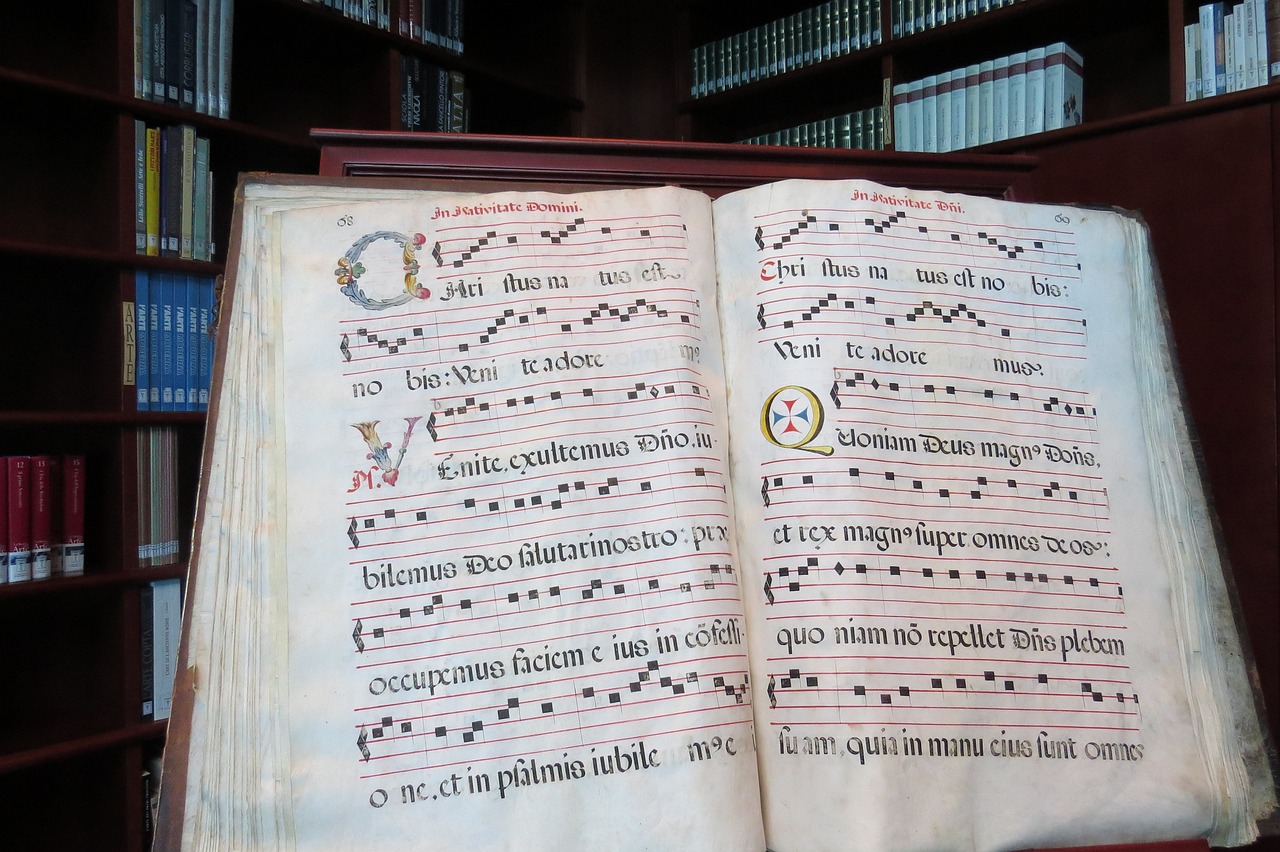 68
In Nativitate Domini.
CHri stus na tus est
no bis: Veni te adore m9
Ps. VEnite, exultemus Dño, iu-
bilemus Deo salutari nostro: præ
occupemus faciem e ius in cõfessi-
o ne, et in psalmis iubile m9 e
69
In Nativitate Dñi.
Chri stus na tus est no bis:
Veni te adore mus.
Quoniam Deus magn9 Doñs,
et rex magn9 super omnes deos:
quo niam nõ repellet Dñs plebem
suam, quia in manu eius sunt omnes
ARTE
L'ARTE
L'ARTE
L'ARTE
L'ARTE
L'ARTE